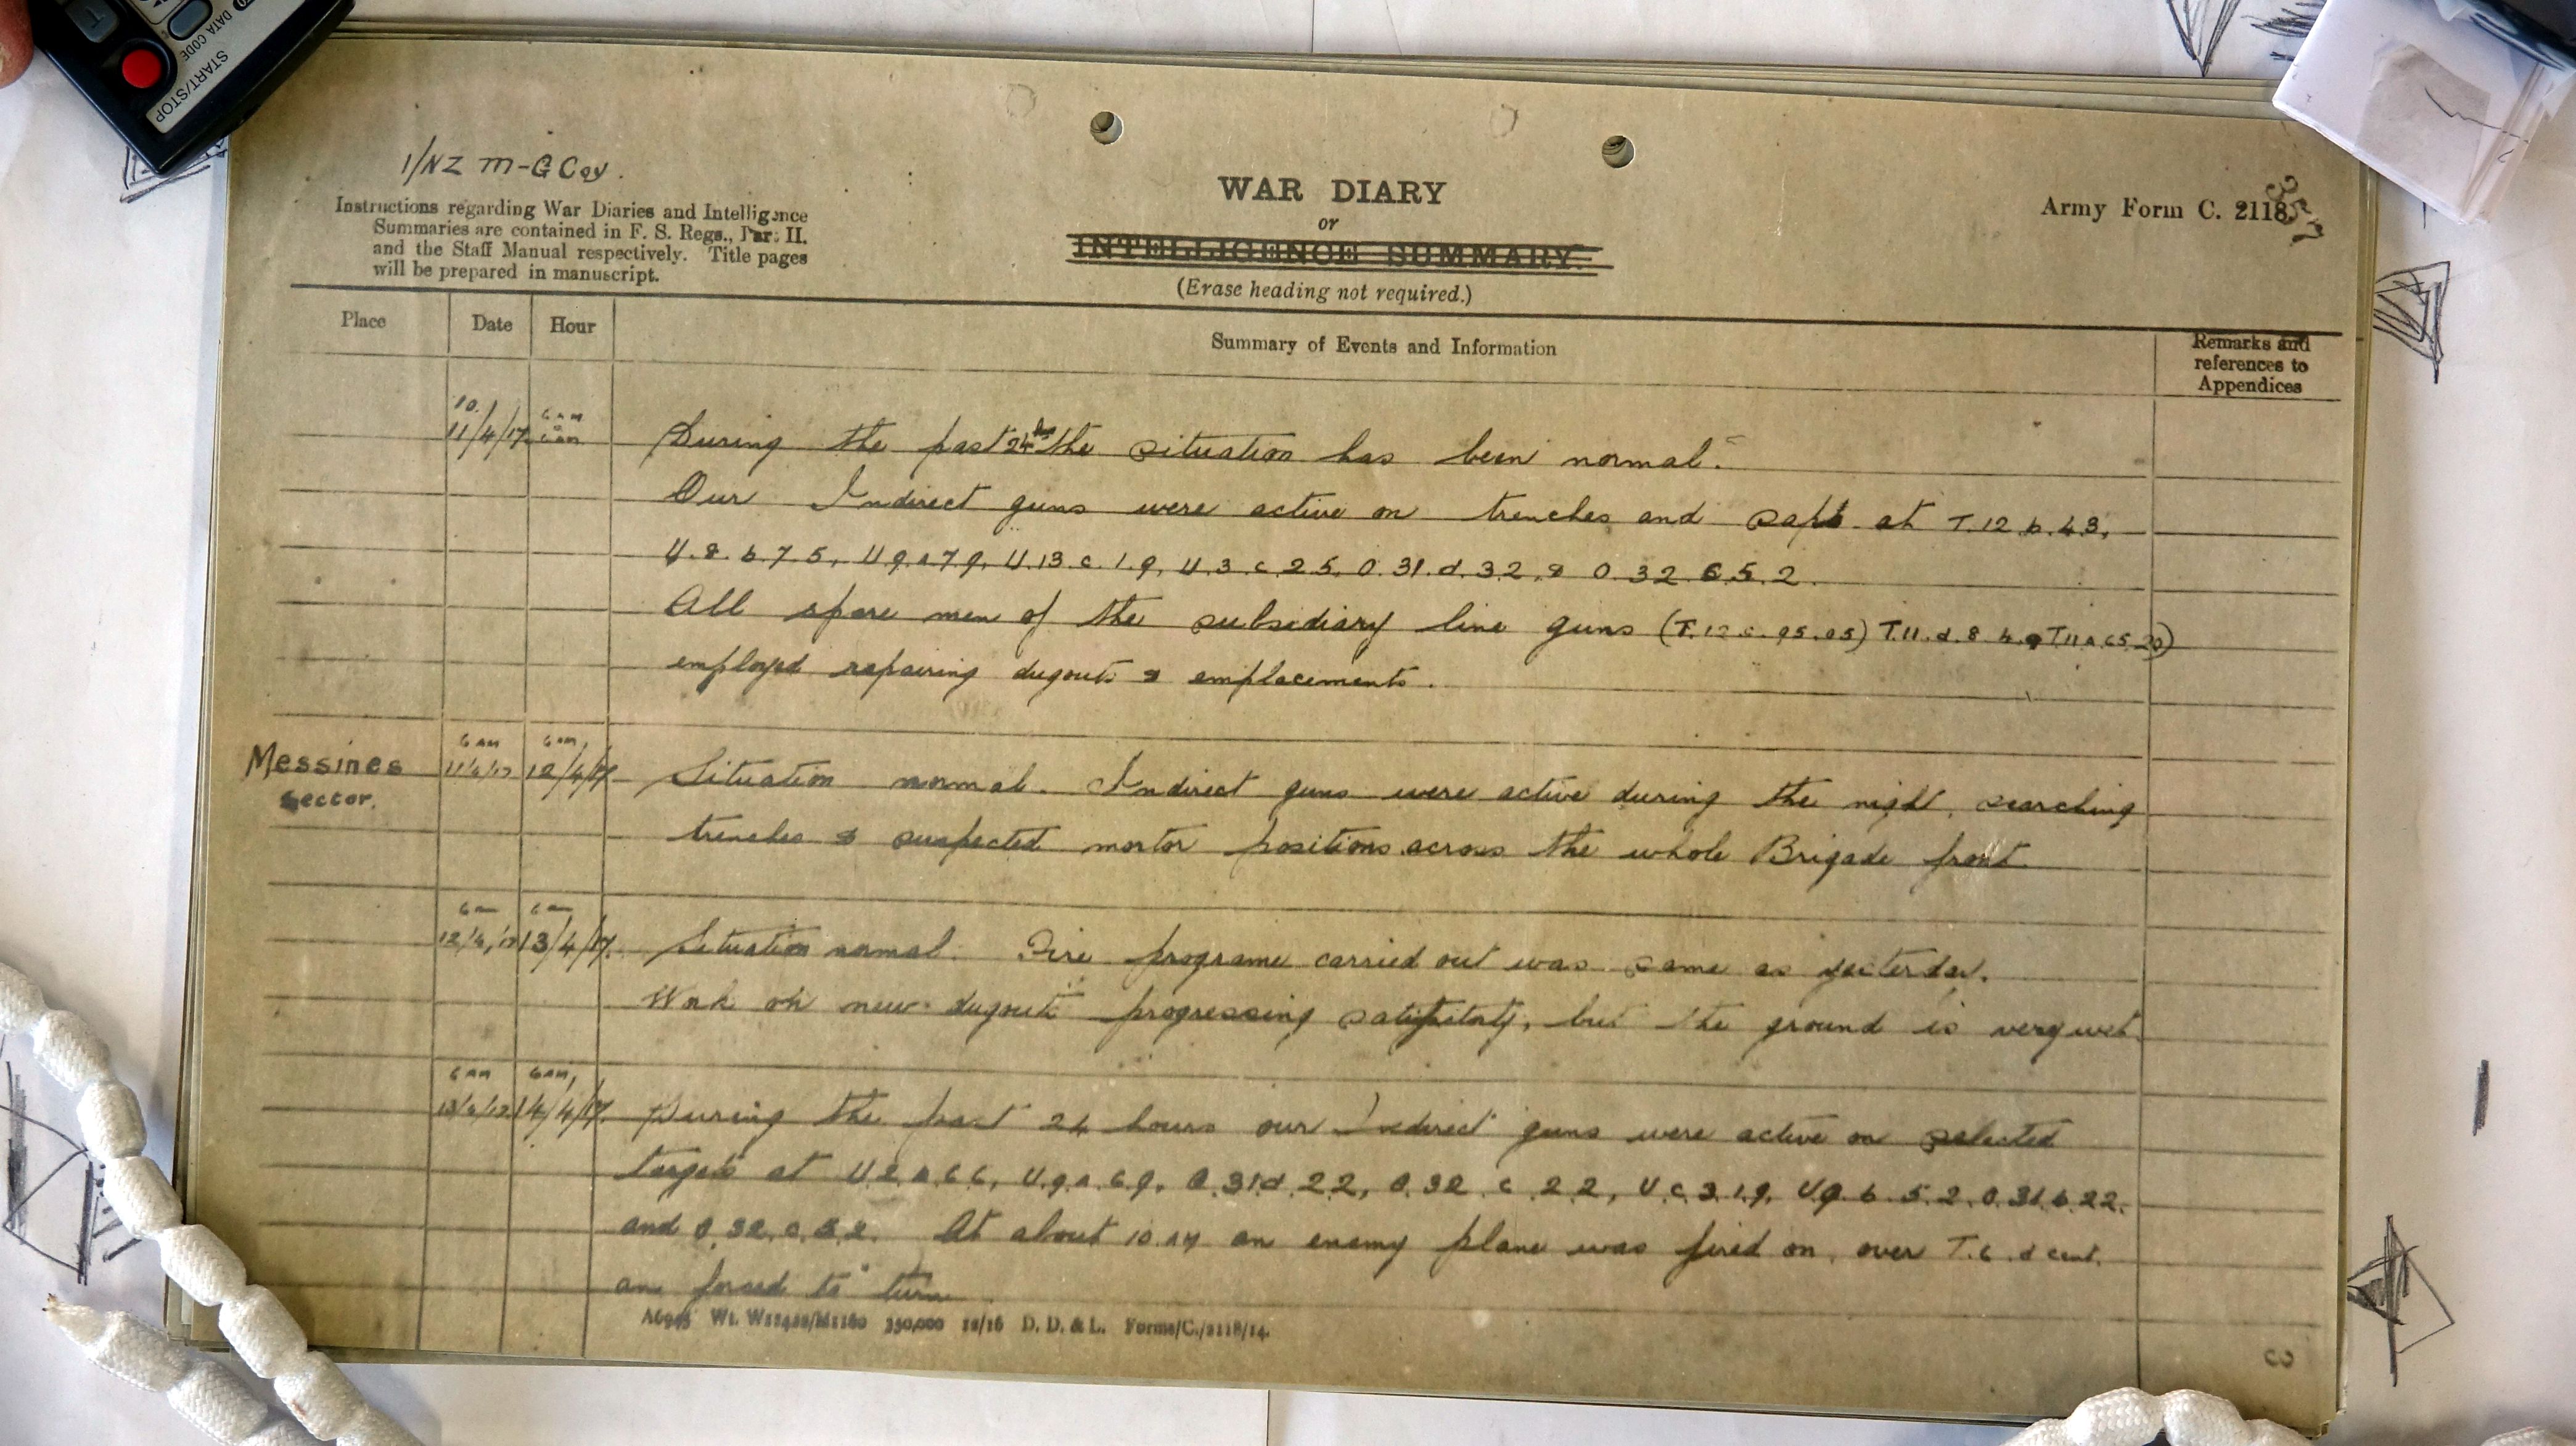 DATA CODE
START/STOP
1/NZ M-G Coy.
Instructions regarding War Diaries and Intelligence
Summaries are contained in F. S. Regs., Part II.
and the Staff Manual respectively. Title pages
will be prepared in manuscript.
WAR DIARY
or
INTELLIGENCE SUMMARY.
(Erase heading not required.)
Army Form C. 2118.
357
Place Date Hour Summary of Events and Information Remarks and references to Appendices
10. 6 am
11/4/17 6 am During the past 24 hrs the situation has been normal.
Our Indirect guns were active on trenches and saps at T.12.b.43,
U.8.b.7.5, U9a79, U.13.c.1.9, U.3.c.25, O.31.d.32, & O.32 5.2.
All spare men of the subsidiary line guns (T.12.c.95.05) T.11.d.8.4. T.11.a.65.20)
employed repairing dugouts & emplacements.
6 am 6 am,
Messines 11/4/17 12/4/17 Situation normal. Indirect guns were active during the night, searching
Sector. trenches & suspected mortor positions across the whole Brigade front.
6 am 6 am
12/4/17 13/4/17. Situation normal. Fire programe carried out was same as yesterday.
Work on new dugouts progressing but the ground is very wet.
6 am 6 am,
13/4/17 14/4/17. During the past 24 hours our Indirect guns were active on selected
targets at U.9.a.69, O.31d.22, O.32.c.22, U.c.3.1.9, U9b.5.2, O.31.b.22.
and At about 10 AM an enemy plane was fired on, over T.6.d cent.
an forced to turn
A6945 Wt. W11422/M1160 350,000 12/16 D. D. & L. Forms/C./2118/14.